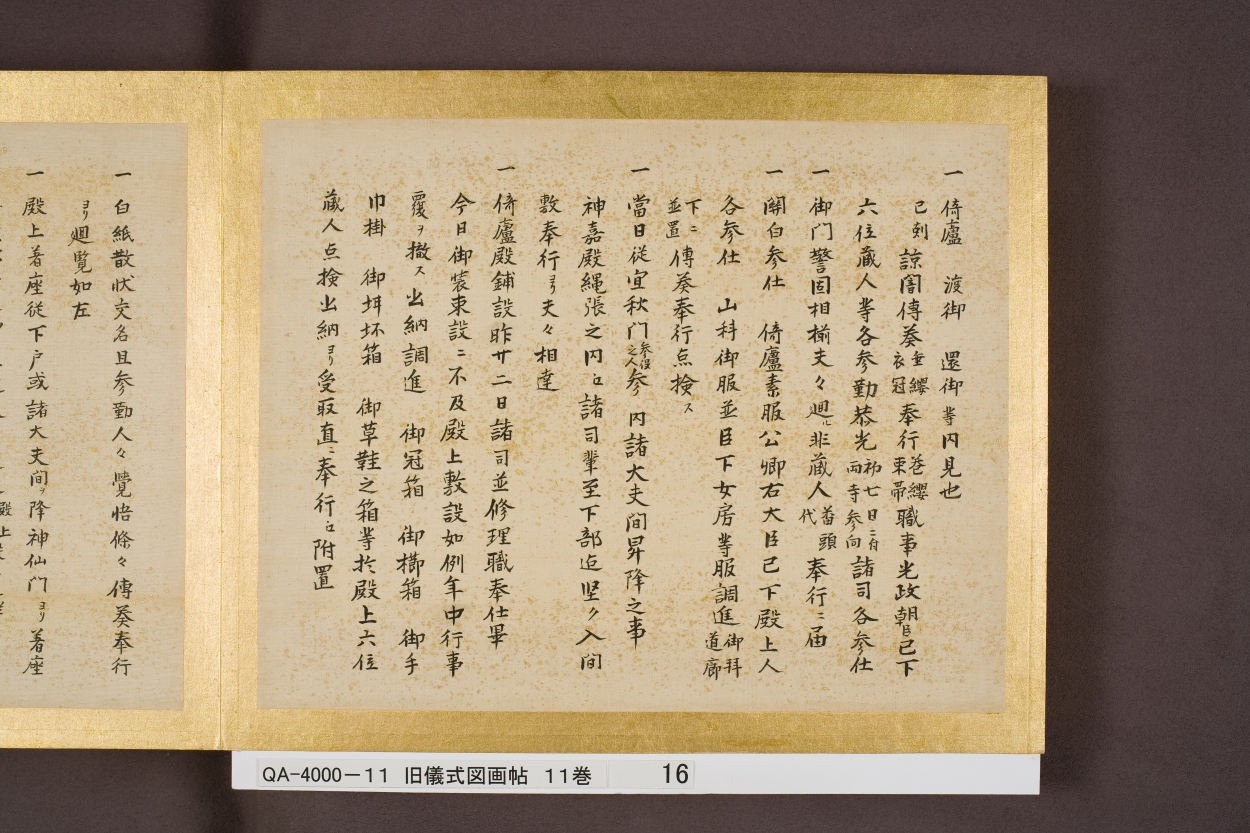 一 倚廬 渡御 還御等内見也
巳剋 諒闇傳奏衣冠垂纓奉行束帯巻纓職事光政朝臣已下
六位蔵人等各参勤恭光初七日ニ付両寺参向諸司各参仕
一 御門警固相揃夫々廻ル非蔵人番頭代奉行ニ届
一 関白参仕 倚廬素服公卿右大臣已下殿上人
各参仕 山科御服並臣下女房等服調進御拝道廊
下ニ並置傳奏奉行点撿ス
一 當日従宜秋门参役之人参内諸大夫間昇降之事
神嘉殿縄張之内ニ諸司輩至下部迄堅ク入间
敷奉行ヨリ夫々相達
一 倚廬殿鋪設昨廿二日諸司並修理職奉仕畢
今日御装束設ニ不及殿上敷設如例年中行事
覆ヲ撤ス出納調進 御冠箱 御櫛箱 御手
巾掛 御坏箱 御草鞋之箱等於殿上六位
蔵人点撿出納ヨリ受取直ニ奉行江附置
一 白紙散状交名且参勤人々覺悟條々傳奏奉行
ヨリ廻覧如左
一 殿上着座従下戸或諸大夫間ヲ降神仙门ヨリ着座
殿上
QA-4000-11 旧儀式図画帖 11巻 16